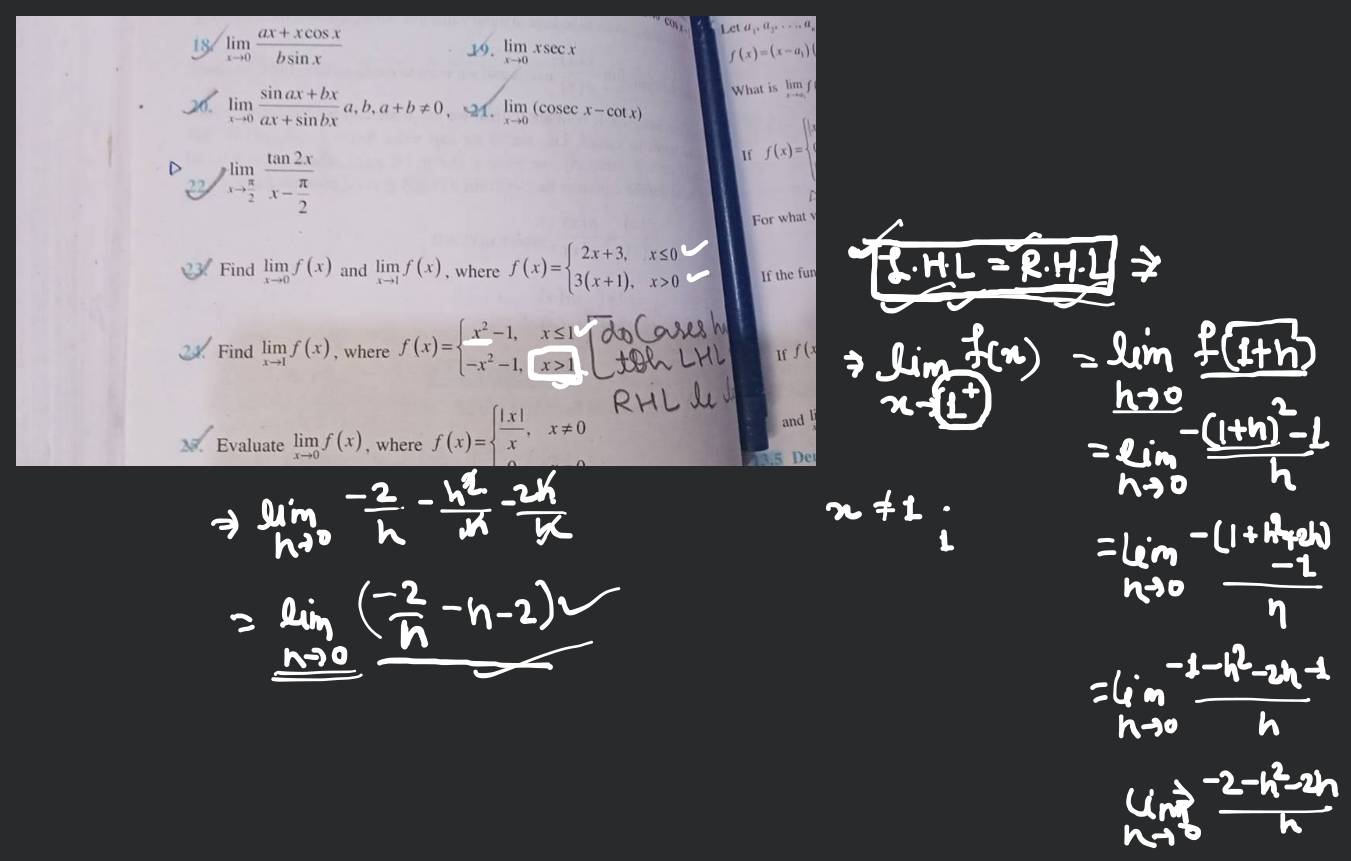 18. lim x→0 (ax + x cos x)/(b sin x)
19. lim x→0 x sec x
20. lim x→0 (sin ax + bx)/(ax + sin bx) a, b, a + b ≠ 0,
21. lim x→0 (cosec x − cot x)
22. lim x→π/2 (tan 2x)/(x − π/2)
23. Find lim x→0 f(x) and lim x→1 f(x), where f(x) = { 2x + 3, x ≤ 0
3(x + 1), x > 0
24. Find lim x→1 f(x), where f(x) = { x² − 1, x ≤ 1
−x² − 1, x > 1
do Cases
LHL
RHL
25. Evaluate lim x→0 f(x), where f(x) = { |x|/x, x ≠ 0
0
Let a₁, a₂, . . ., a
f(x) = (x − a₁)(
What is lim f
If f(x) = {
For what v
If the fun
If f(x
and li
13.5 De
L.H.L = R.H.L ⇒
⇒ lim x→1⁺ f(x) = lim h→0 f(1+h)
= lim h→0 (−(1+h)² −1)/h
x ≠ 1 ;
1
= lim h→0 (−(1+h²+2h) −1)/h
= lim h→0 (−1−h²−2h−1)/h
lim h→0 (−2−h²−2h)/h
⇒ lim h→0 −2/h − h²/h − 2h/h
= lim h→0 (−2/h − h − 2)